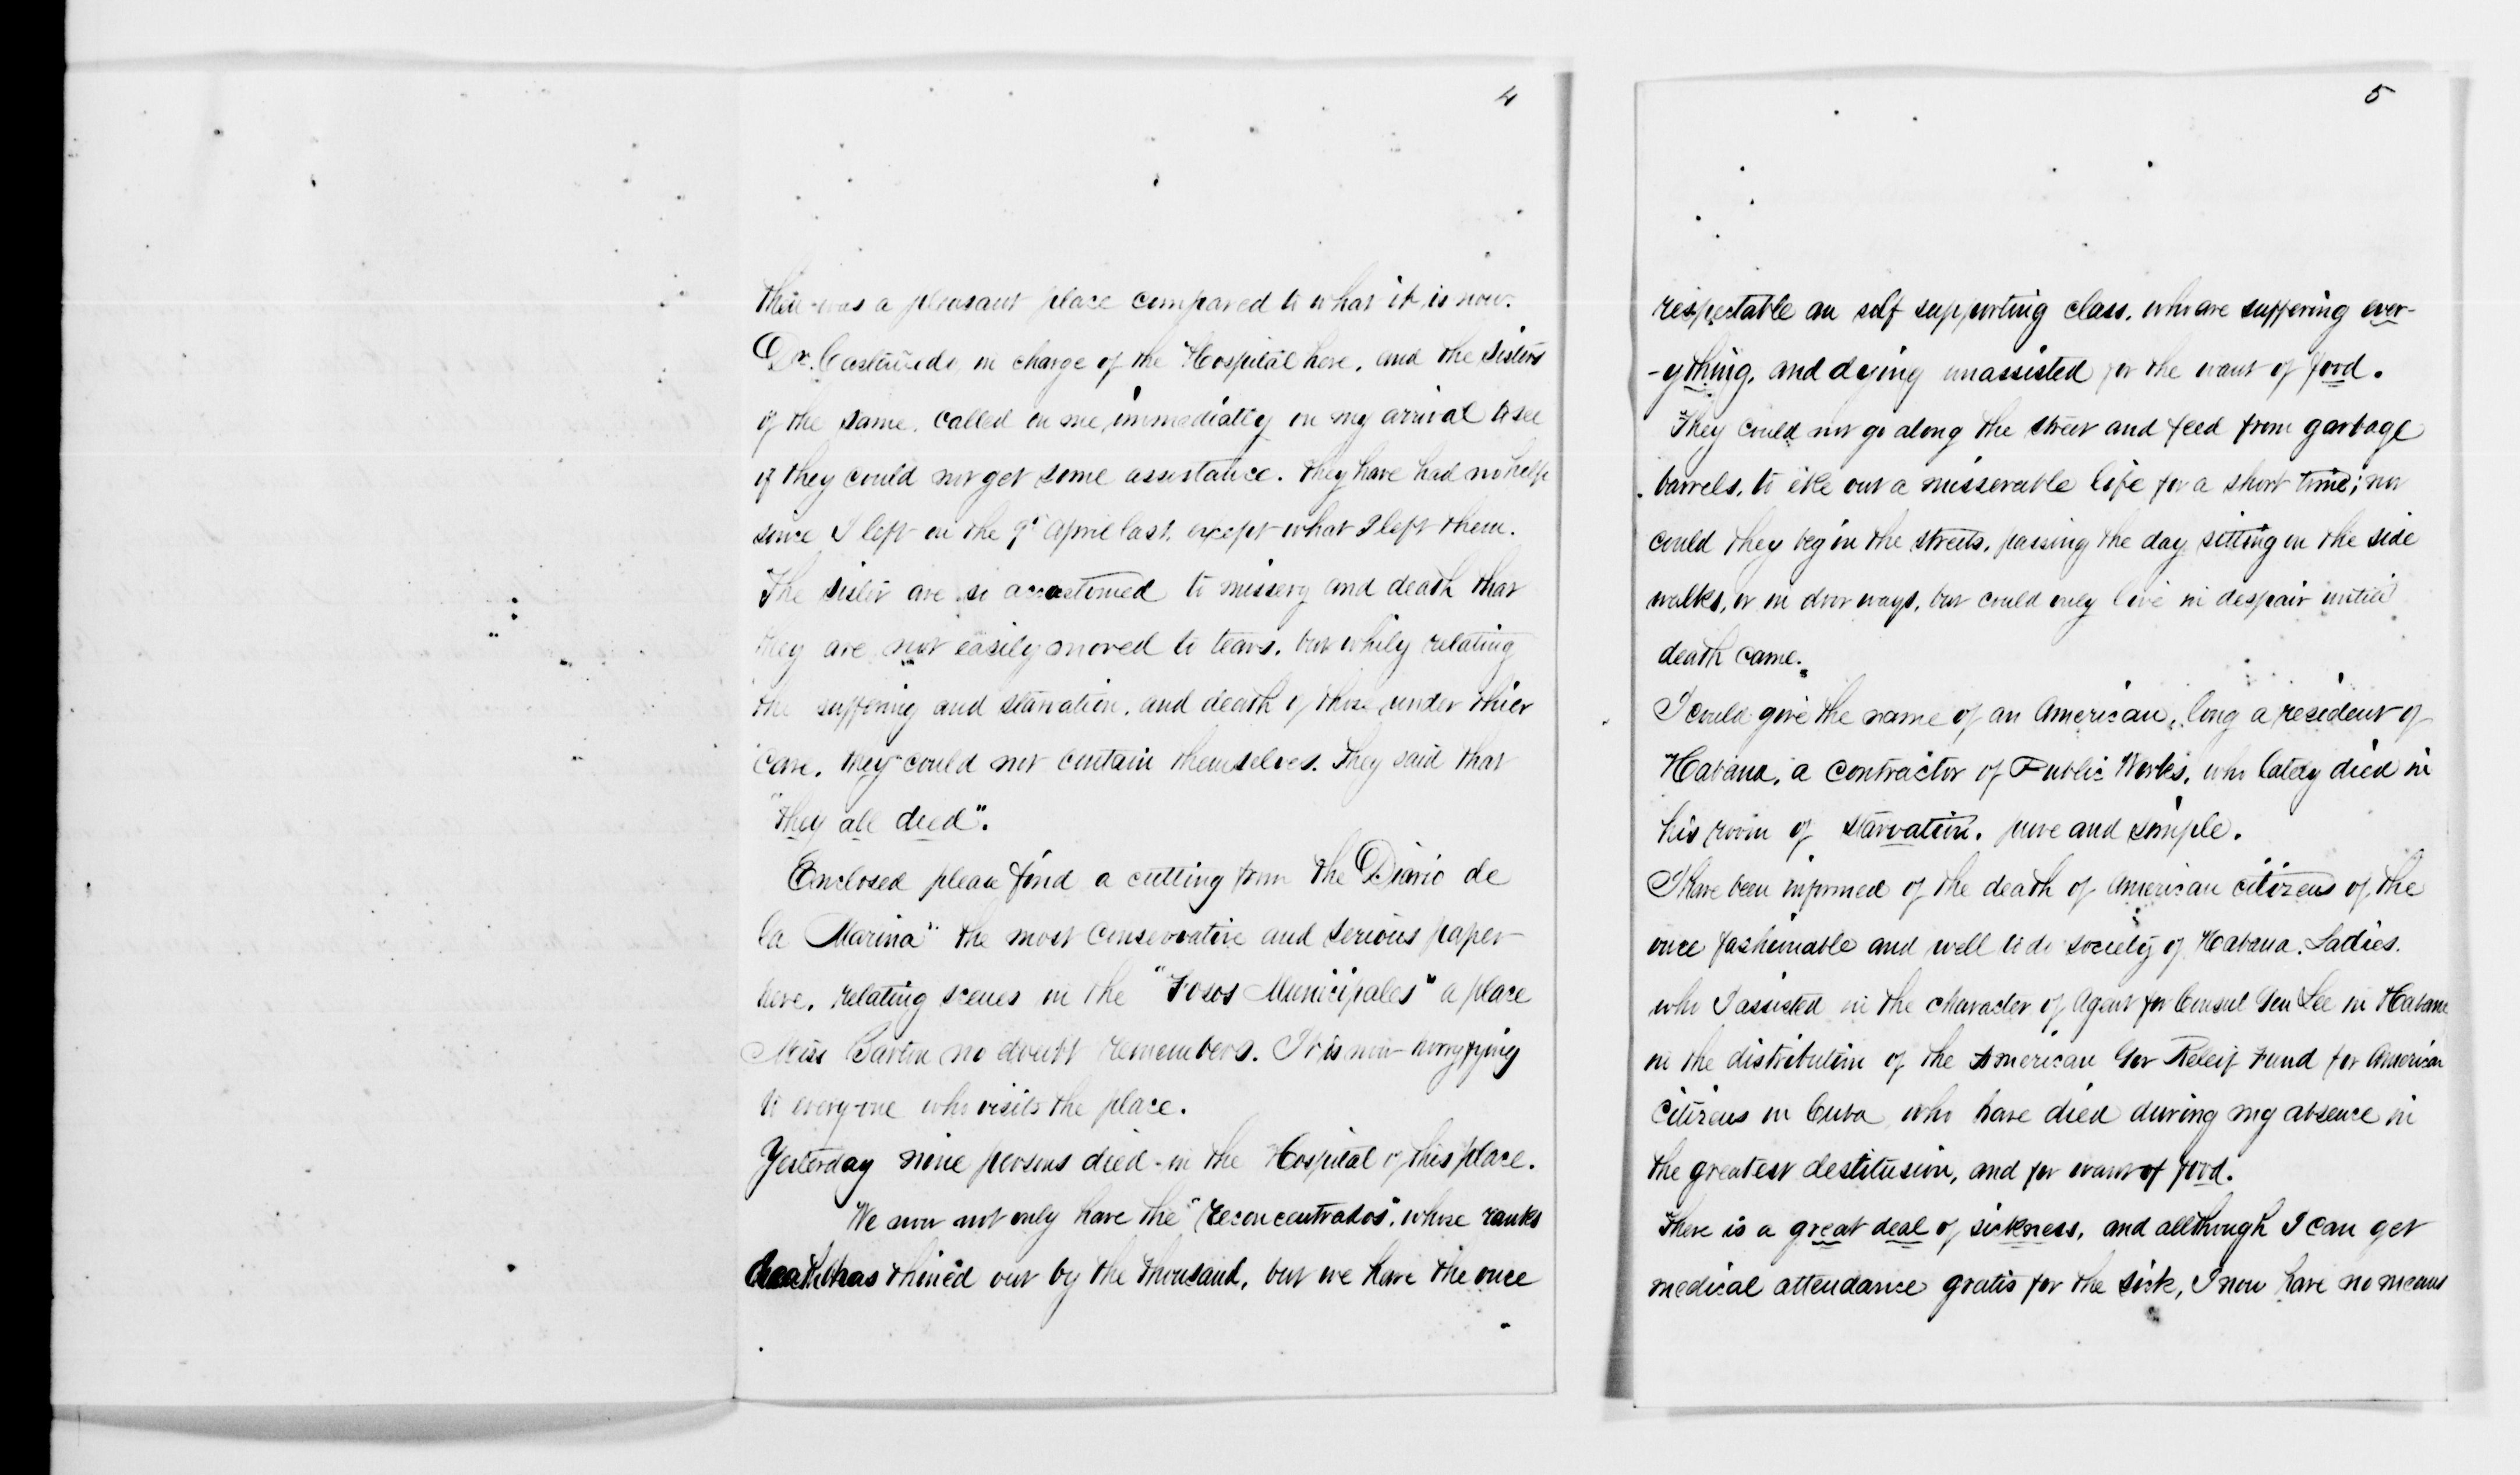 4
then was a pleasant place compared to what it is now.
Dr. Castañedo, in charge of the Hospital here, and the Sisters
of the same, called on me, immediatly on my arrival to see
if they could not get some assistance. They have had no help
since I left on the 9" April last, except what I left them.
The sister are so accustomed to missery and death that
they are not easily moved to tears, but whily relating
the suffering and starvation, and death of those under thier
care, they could not contain themselves. They said that
"they all died".
Enclosed please find a cutting from the Diario de
la Marina" the most conservative and serious paper
here, relating scenes in the "Fosos Municipales" a place
Miss Barton no doubt remembers. It is now horryfying
to every-one who visits the place.
Yesterday nine persons died - in the Hospital of this place.
We now not only have the "reconcentrados", whose ranks
death has thined out by the thousand, but we have the once
5
respectable an self supporting class, who are suffering ever-
-ything, and dying unassisted for the want of food.
They could not go along the street and feed from garbage
barrels, to eke out a misserable life for a short time; nor
could they beg in the streets, passing the day sitting on the side
walks, or in door ways, but could only live in despair untill
death came.
I could give the name of an American, long a resident of
Habana, a contractor of Public Works, who lately died in
his room of starvation, pure and simple.
I have been informed of the death of American citizens of the
once fashionable and well to do society of Habana. Ladies.
who I assisted in the character of Agent for Consul Gen Lee in Habana
in the distribution of the American Gov Releif Fund for American
Citizens in Cuba, who have died during my absence in
the greatest destitusion, and for want of food.
There is a great deal of sickness, and allthough I can get
medical attendance gratis for the sick, I now have no means